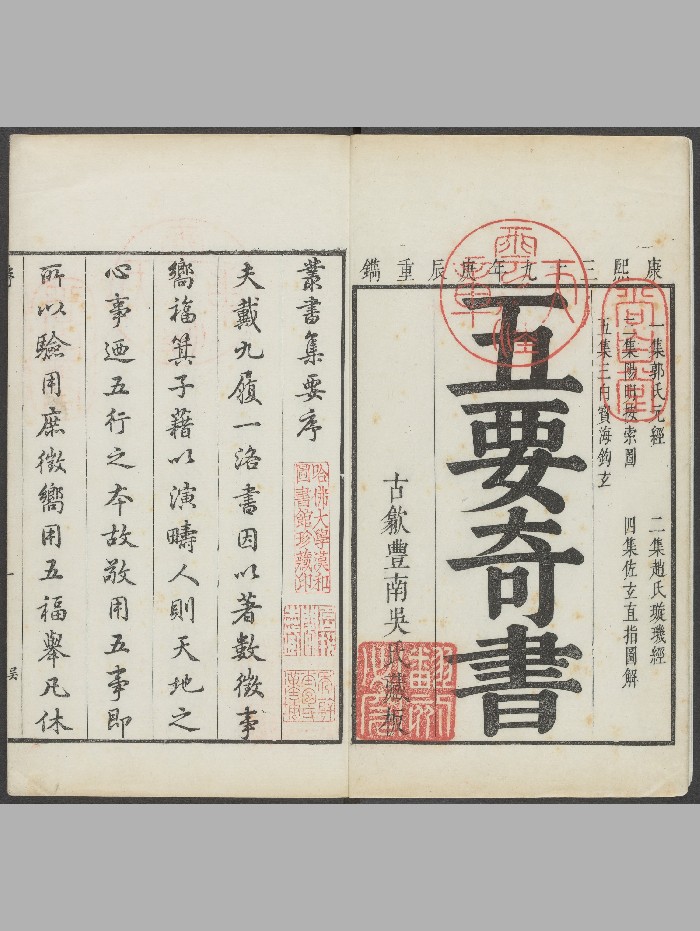 康熙三十九年庚辰重鐫
一集郭氏元經
二集趙氏璇璣經
三集陽明按索圖
四集佐玄直指圖解
五集三白寶海鈎玄
五要奇書
古歙豐南吳氏藏板
叢書集要序
哈佛大學漢和圖書館珍藏印
夫戴九履一洛書因以著數徵事
嚮福箕子藉以演疇人則天地之
心事廼五行之本故敬用五事即
所以驗用庶徵嚮用五福舉凡休
序
一
吳